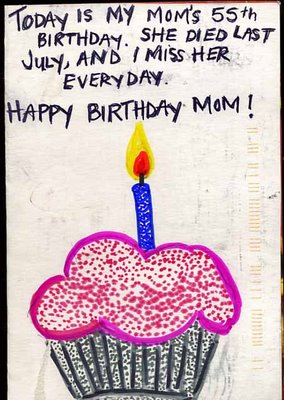 TODAY IS MY MOM'S 55th
BIRTHDAY. SHE DIED LAST
JULY, AND I MISS HER
EVERYDAY.
HAPPY BIRTHDAY MOM!